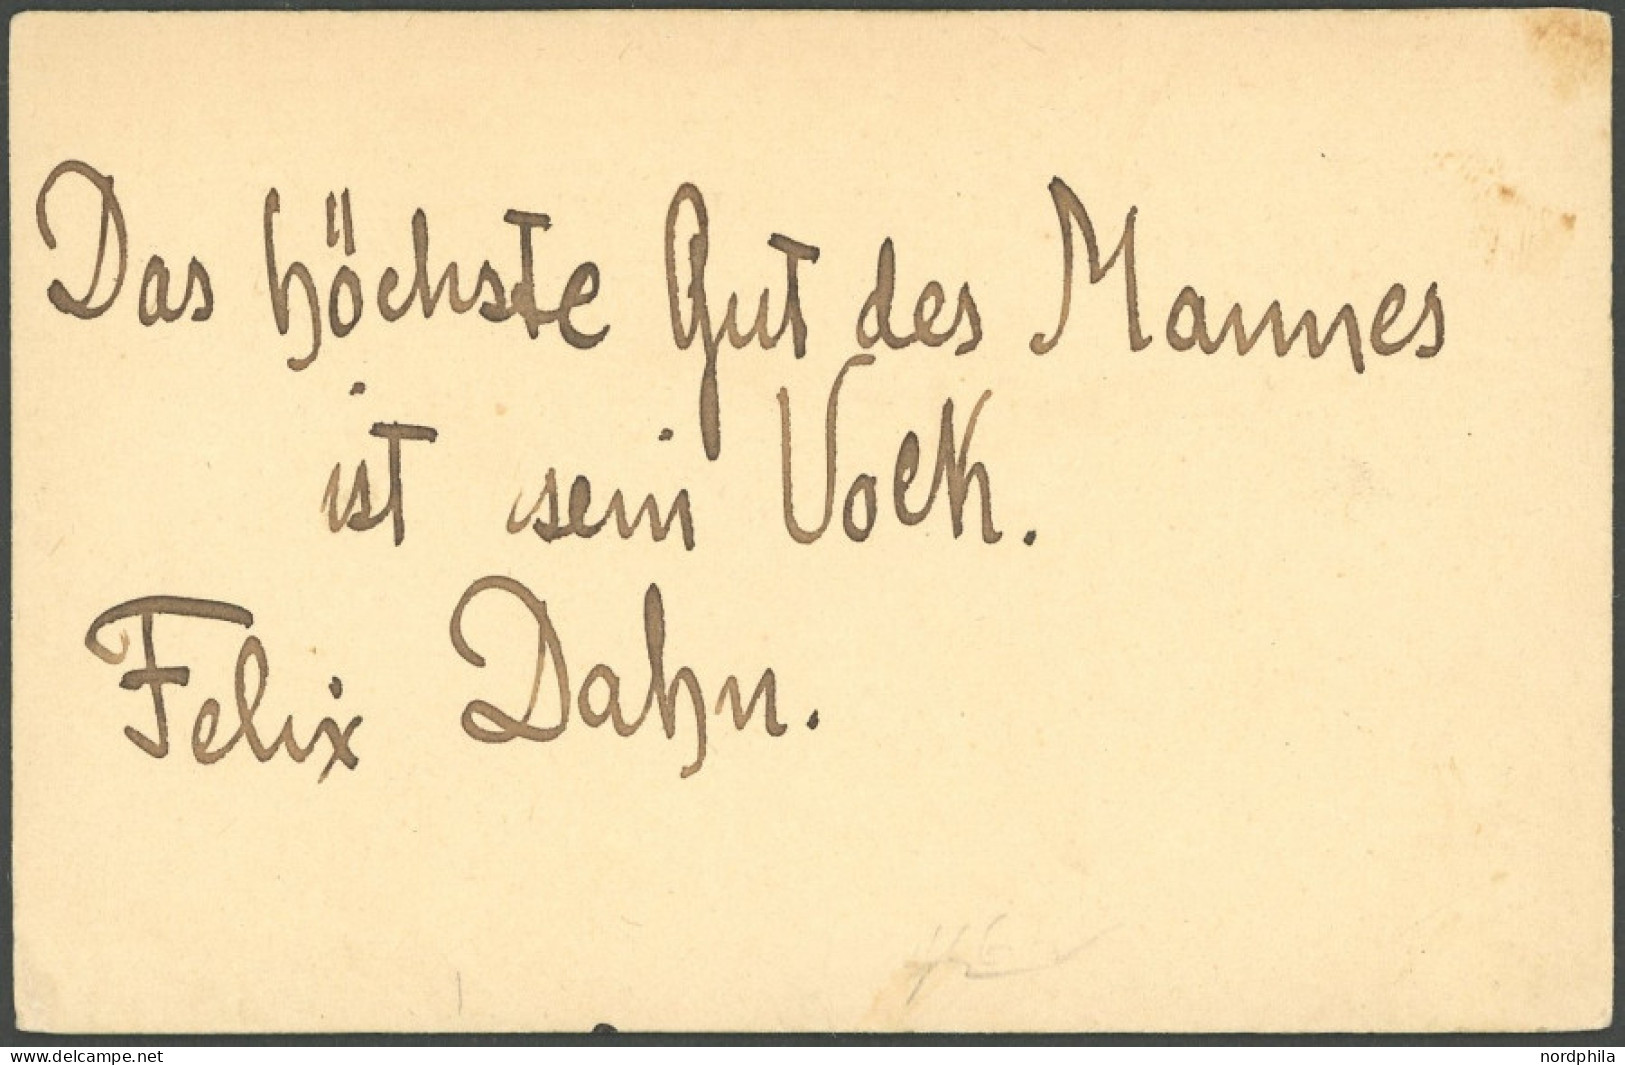 Das höchste Gut des Mannes
ist sein Volk.
Felix Dahn.
delcampe.net
nordphila